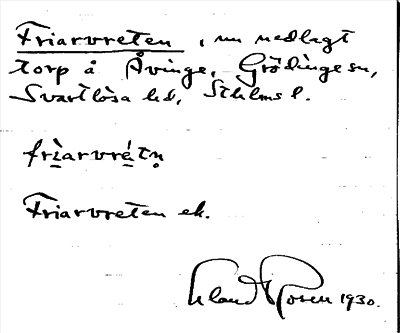 Friarvreten, nu nedlagt
torp å Åvinge, Grödinge sn,
Svartlösa hd, Sthlms l.
frìarvré̀tn̥
Friarvreten ek.
Rosen 1930.